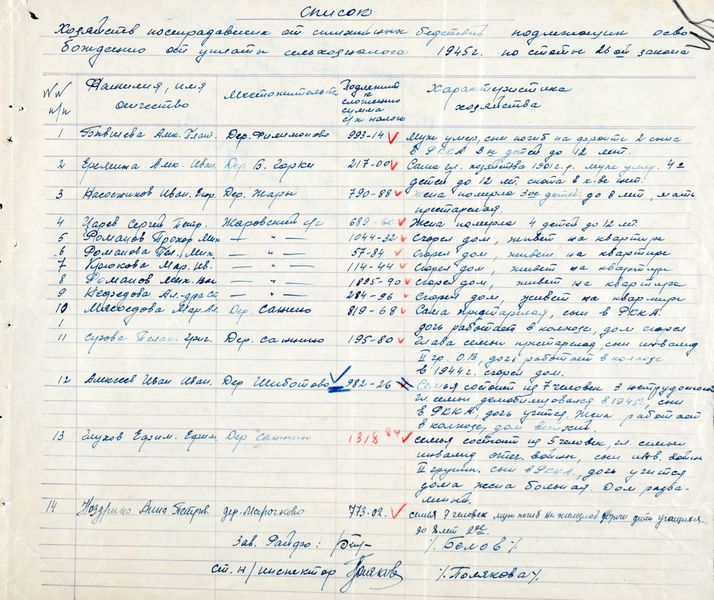 Список
Хозяйств пострадавших от стихийных бедствий подлежащих осво
бождению от уплаты сельхозналога 1945г. по статье 26ой закона
№№ п/п Фамилия, имя отчество Местожительство Подлежит к сложению сумма с/х налога Характеристика хозяйства
1 Дер. Филимоново 993-14 Муж умер, сын погиб на фронте 2 сына
в РККА 3х детей до 12 лет.
2 Еремина Анк. Иван. Дер. Б. Горки 217-00 Сама гл. хозяйства 1901г.р. муж умер. 4е
детей до 12 лет. скота в х-ве нет.
3 Насосников Иван. Егор. Дер. Жары 790-88 Жена померла 3ое детей до 8 лет, мать
престарелая.
4 Царев Сергей Петр. Жаровский с/с 689-60 Жена померла 4 детей до 12 лет
5 Романов Прохор Мих — " — 1044-32 Сгорел дом, живет на квартире
6 Романова Пел. Мих — " — 57-84 Сгорел дом, живет на квартире
7 Крюкова Мар. Ив. — " — 114-44 Сгорел дом, живет на квартире
8 Романов Мих. — " — 1895-90 Сгорел дом, живет на квартире
9 Нефедова Ал-дра — " — 284-96 Сгорел дом, живет на квартире
10 Мясоедова Мар. Ал. Дер. Сажино 819-68 Сама престарелая, сын в РККА
дочь работает в колхозе, дом сгорел
11 Сурова Пелаг. Григ. Дер. Сажино 195-80 Глава семьи престарелая, сын инвалид
II гр. О.В, дочь работает в колхозе
в 1944г. сгорел дом.
12 Алексеев Иван Иван. Дер Шиботово 982-26 Семья состоит из 7 человек 3 нетрудоспос
гл. семьи демобилизовался в 1945г. сын
в РККА, дочь учится. Жена работает
в колхозе, дом ветхий.
13 Глухов Ефим. Ефим. Дер Сажино 1318 84 семья состоит из 5 человек, гл. семьи
инвалид отеч. войны, сын инв. войны
II группы. сын в РККА, дочь учится
дома жена больная Дом разва-
лины.
14 Ноздрина Анна Петров. дер. Марочково 773-02 семья 7 человек муж погиб на железной дороге дети учащиеся
до 8 лет 2ое
Зав. Райфо: /Белов/
ст. н/инспектор Поляков /Полякова/